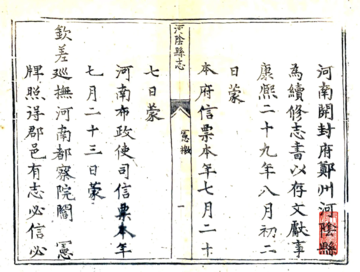 河南開封府鄭州河陰縣
為續修志書以存文獻事
康熙二十九年八月初二
日蒙
本府信票本年七月二十
河陰縣志
憲檄
一
七日蒙
河南布政使司信票本年
七月二十三日蒙
欽差巡撫河南都察院閻 憲
牌照得郡邑有志必信必